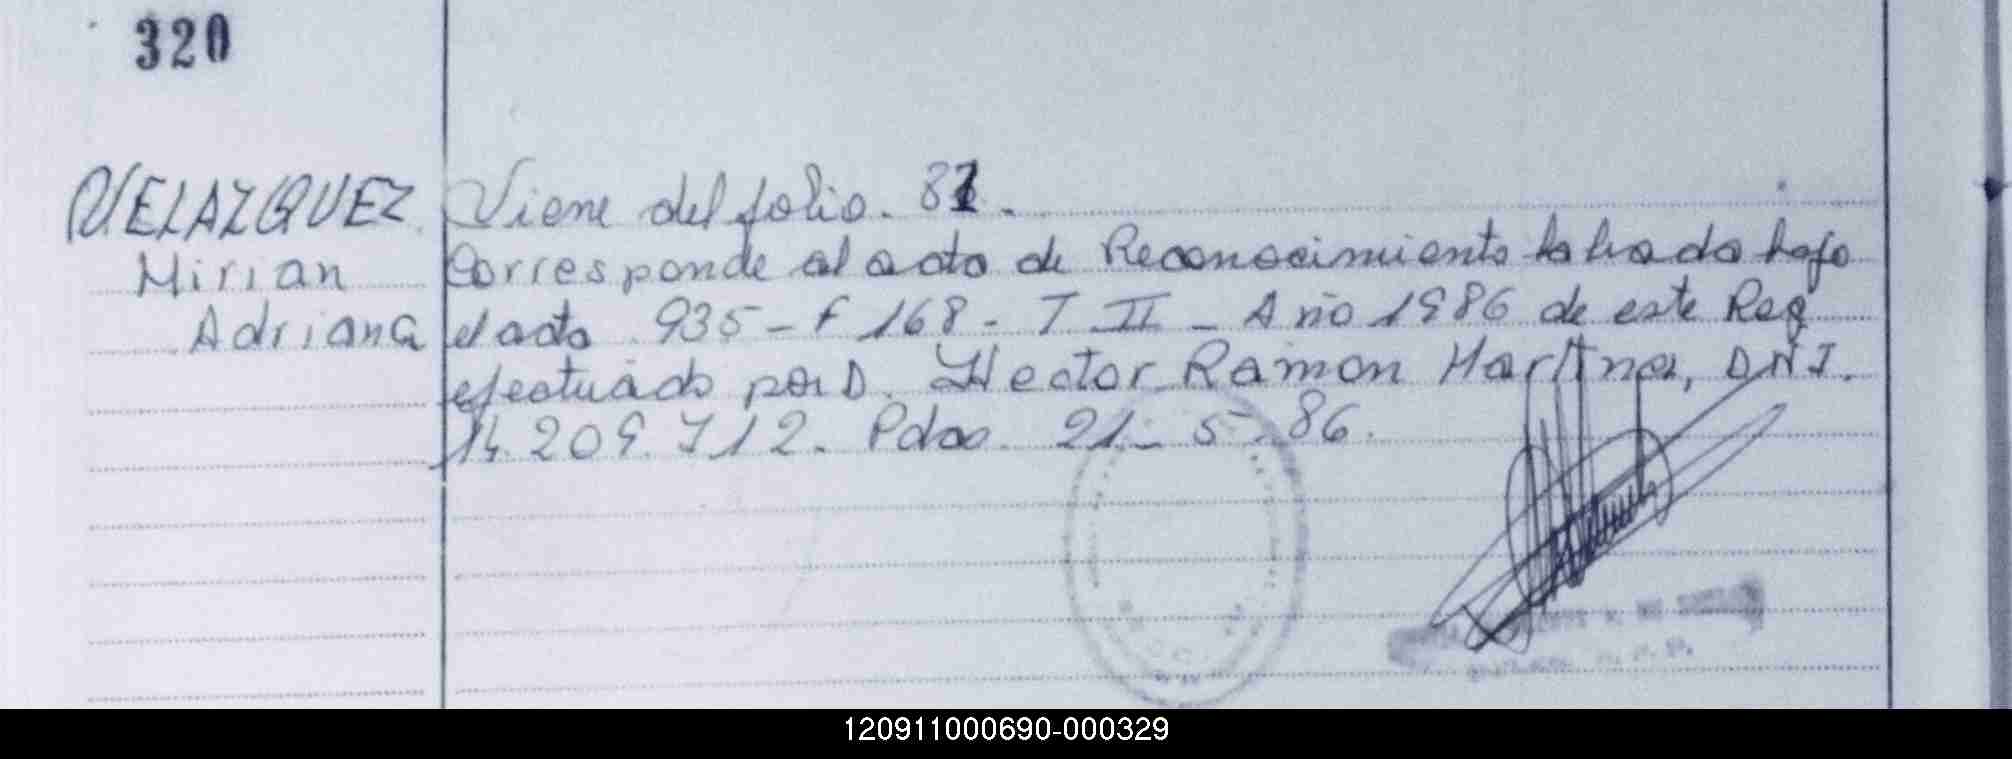 320
VELAZQUEZ
Mirian
Adriana
Viene del folio. 81.
Corresponde al acta de Reconocimiento labrada bajo
el acta 935 - f 168 - T II - Año 1986 de este Reg
efectuado por D. Hector Ramon Martinez, DNI.
14.209.712. Pdas. 21-5-86.
120911000690-000329